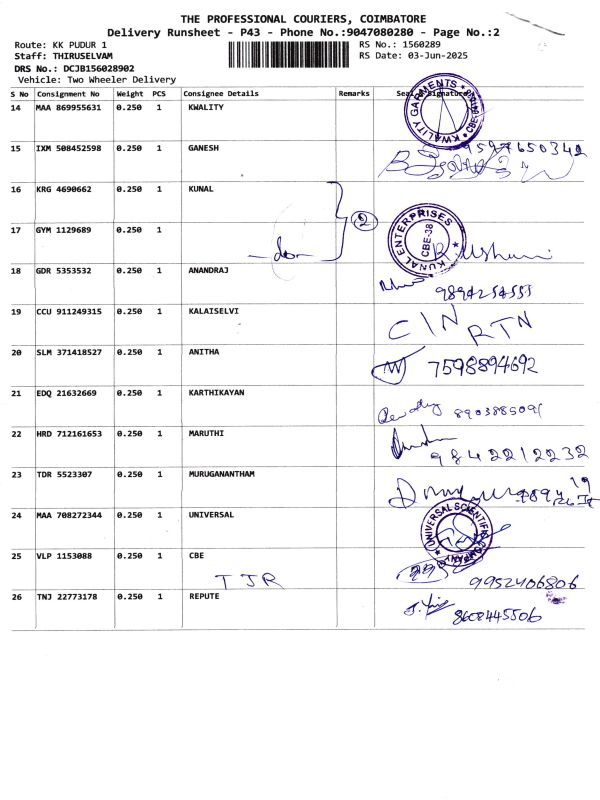 THE PROFESSIONAL COURIERS, COIMBATORE
Delivery Runsheet - P43 - Phone No.:9047080280 - Page No.:2
Route: KK PUDUR 1 RS No.: 1560289
Staff: THIRUSELVAM RS Date: 03-Jun-2025
DRS No.: DCJB156028902
Vehicle: Two Wheeler Delivery
S No Consignment No Weight PCS Consignee Details Remarks Seal & Signature
14 MAA 869955631 0.250 1 KWALITY KWALITY GARMENTS
15 IXM 508452598 0.250 1 GANESH 9597650342
16 KRG 4690662 0.250 1 KUNAL
17 GYM 1129689 0.250 1 -do- 2 KUNAL ENTERPRISES CBE-38
18 GDR 5353532 0.250 1 ANANDRAJ 9894254555
19 CCU 911249315 0.250 1 KALAISELVI C/N RTN
20 SLM 371418527 0.250 1 ANITHA 7598894692
21 EDQ 21632669 0.250 1 KARTHIKAYAN
22 HRD 712161653 0.250 1 MARUTHI 9842212232
23 TDR 5523307 0.250 1 MURUGANANTHAM
24 MAA 708272344 0.250 1 UNIVERSAL UNIVERSAL SCIENTIFIC COMPANY
25 VLP 1153088 0.250 1 CBE
TJR 9952406806
26 TNJ 22773178 0.250 1 REPUTE 8608445506